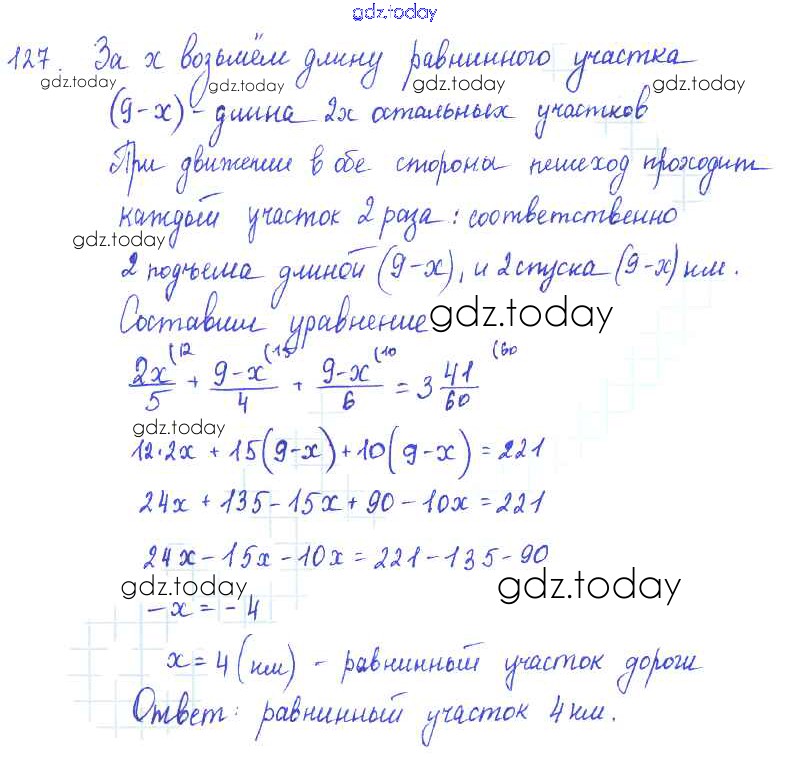 gdz.today
127. За x возьмём длину равнинного участка
gdz.today gdz.today gdz.today gdz.today
(9-x) - длина 2х остальных участков
При движении в обе стороны пешеход проходит
каждый участок 2 раза: соответственно
gdz.today
2 подъема длиной (9-x), и 2 спуска (9-x) км.
Составим уравнение gdz.today
2x/5 (12 + 9-x/4 (15 + 9-x/6 (10 = 3 41/60 (60
gdz.today
12·2x + 15(9-x) + 10(9-x) = 221
24x + 135 - 15x + 90 - 10x = 221
24x - 15x - 10x = 221 - 135 - 90
gdz.today gdz.today
-x = -4
x = 4 (км) - равнинный участок дороги
Ответ: равнинный участок 4 км.